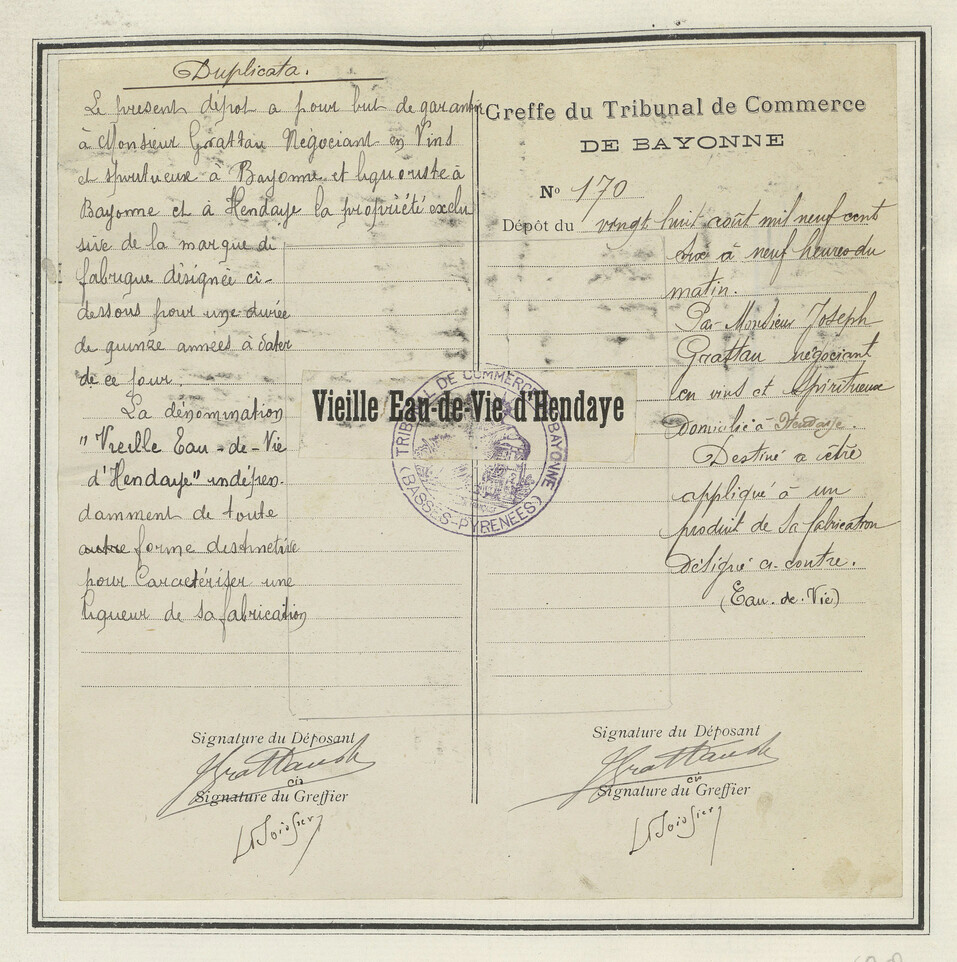 Duplicata.
Le présent dépot a pour but de garantir
à Monsieur Grattau Négociant en Vins
et spiritueux à Bayonne et liquoriste à
Bayonne et à Hendaye la propriété exclu
sive de la marque de
fabrique désignée ci-
dessous pour une durée
de quinze années à dater
de ce jour.
La dénomination
"Vieille Eau-de-Vie
d'Hendaye" indépen-
damment de toute
autre forme distinctive
pour Caractériser une
liqueur de sa fabrication
Signature du Déposant
cir
Signature du Greffier
Greffe du Tribunal de Commerce
DE BAYONNE
No 170
Dépôt du vingt huit août mil neuf cent
six à neuf heures du
matin.
Par Monsieur Joseph
Grattau négociant
en vins et Spiritueux
domicilié à Hendaye.
Destiné a être
appliqué à un
produit de sa fabrication
désigné ci-contre.
(Eau-de-Vie)
Signature du Déposant
cir
Signature du Greffier
Vieille Eau-de-Vie d'Hendaye
TRIBUNAL DE COMMERCE BAYONNE
(BASSES-PYRENEES)